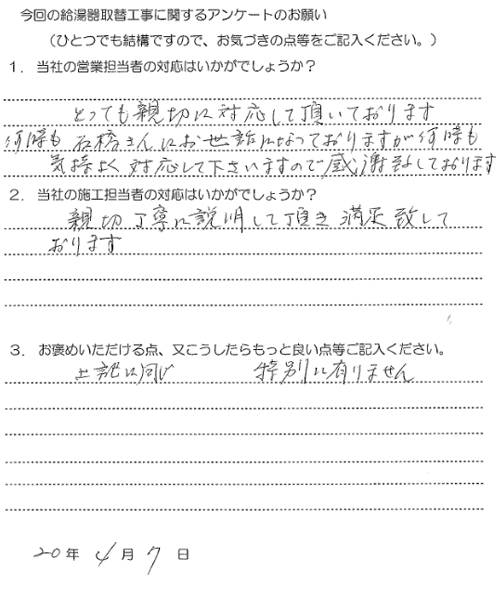 今回の給湯器取替工事に関するアンケートのお願い
（ひとつでも結構ですので、お気づきの点等をご記入ください。）
１．当社の営業担当者の対応はいかがでしょうか？
とっても親切に対応して頂いております
何時も石橋さんにお世話になっておりますが何時も
気持よく対応して下さいますので感謝致しております
２．当社の施工担当者の対応はいかがでしょうか？
親切丁寧に説明して頂き満足致して
おります
３．お褒めいただける点、又こうしたらもっと良い点等ご記入ください。
上記に同じ　特別に有りません
20年4月7日